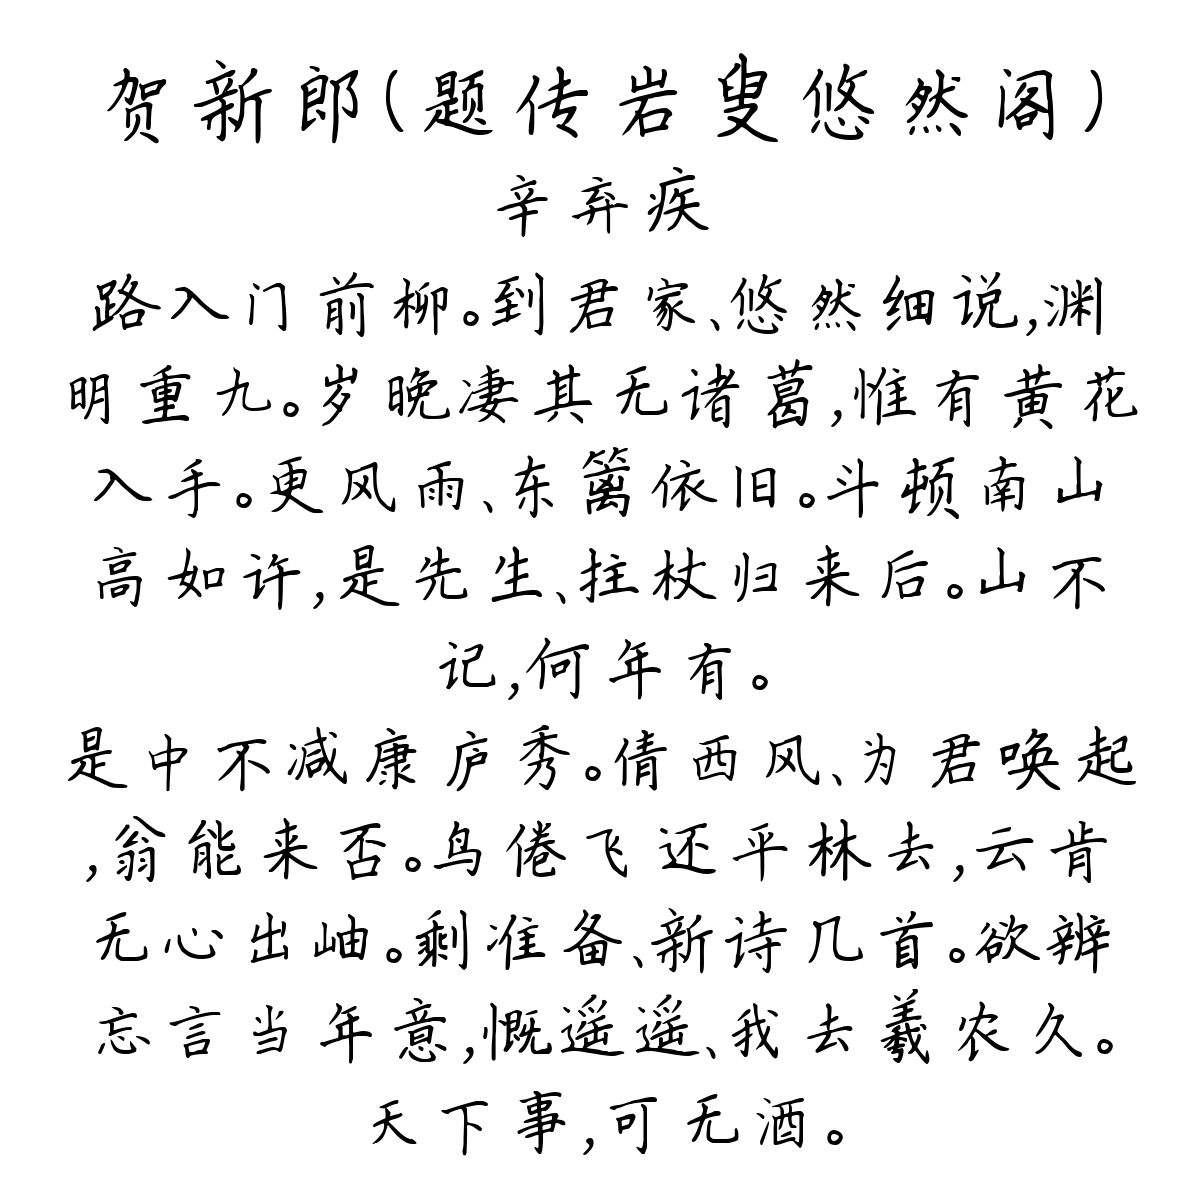 贺新郎(题传岩叟悠然阁)
辛弃疾
路入门前柳。到君家、悠然细说,渊
明重九。岁晚凄其无诸葛,惟有黄花
入手。更风雨、东篱依旧。斗顿南山
高如许,是先生、拄杖归来后。山不
记,何年有。
是中不减康庐秀。倩西风、为君唤起
,翁能来否。鸟倦飞还平林去,云肯
无心出岫。剩准备、新诗几首。欲辨
忘言当年意,慨遥遥、我去羲农久。
天下事,可无酒。